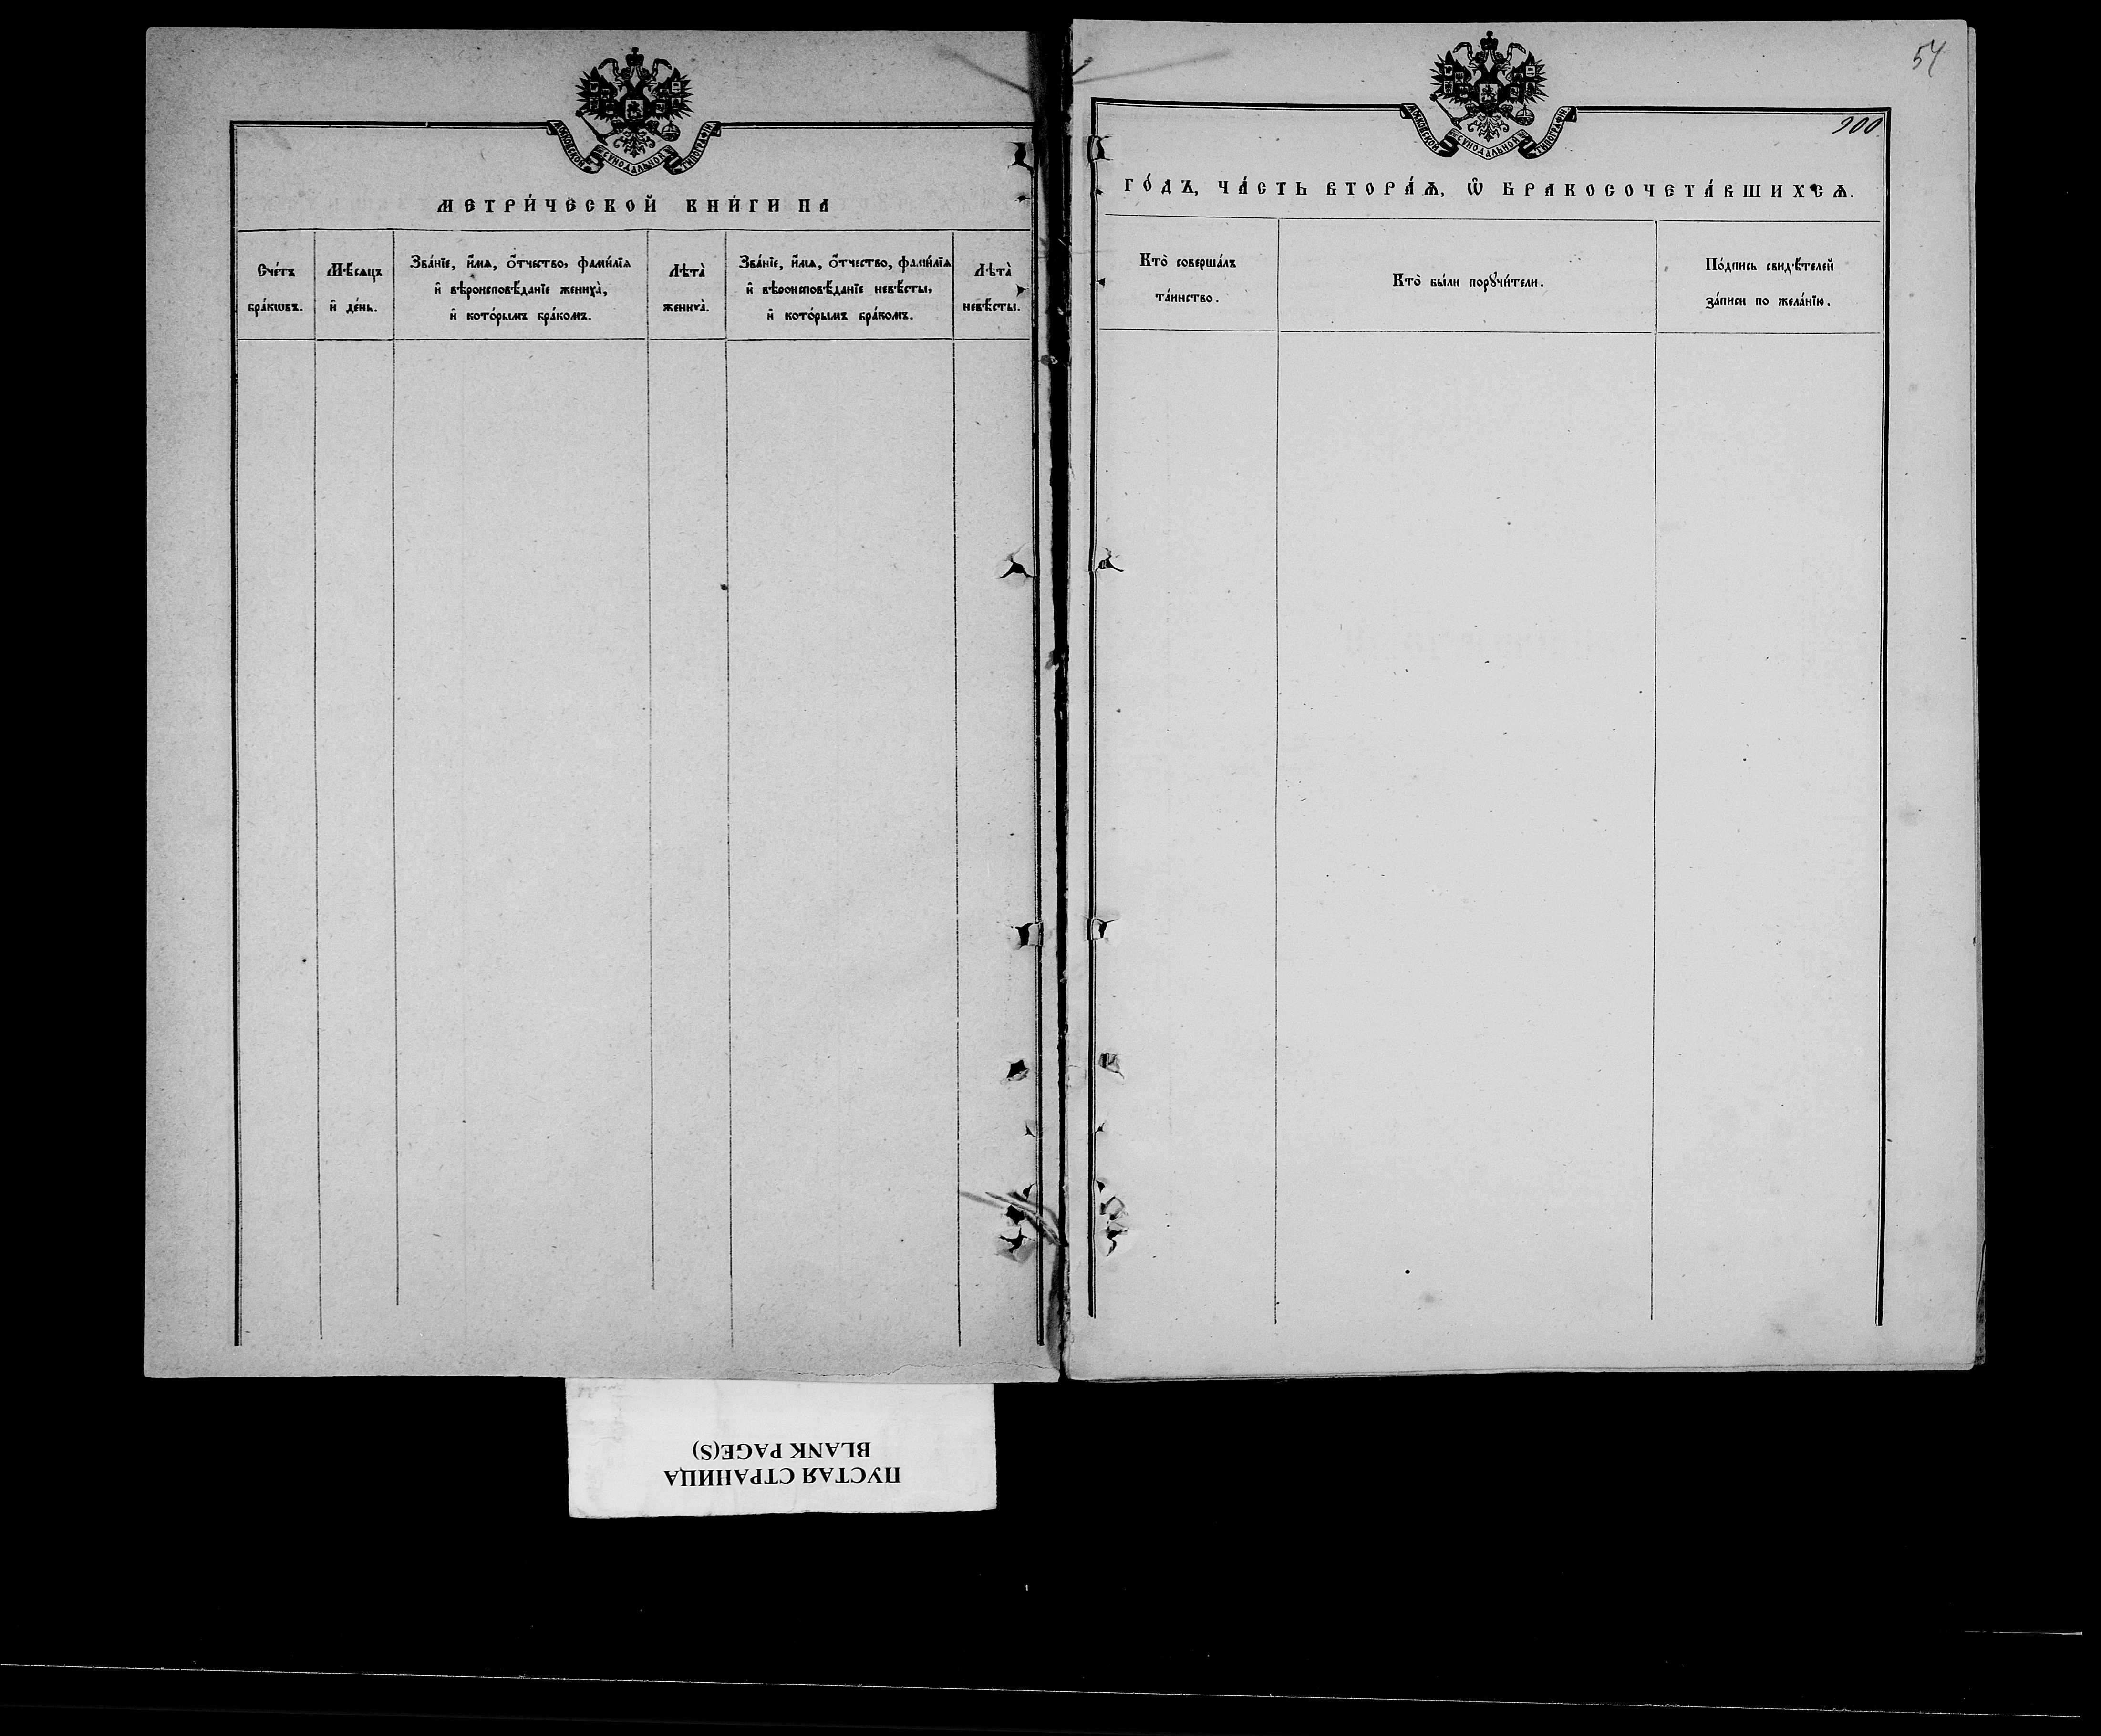 МОСКОВСКОЙ СѴНОДАЛЬНОЙ ТИПОГРАФІИ
МЕТРИ́ЧЕСКОЙ КНИ́ГИ НА
Сче́тъ
бра́кѡвъ.
Мѣ́сяцъ
и҆ де́нь.
Зва́нїе, и҆́мѧ, ѻ҆́тчество, фами́лїѧ
и҆ вѣроисповѣ́данїе жениха̀,
и҆ кото́рымъ бра́комъ.
Лѣта̀
жениха̀.
Зва́нїе, и҆́мѧ, ѻ҆́тчество, фами́лїѧ
и҆ вѣроисповѣ́данїе невѣ́сты,
и҆ кото́рымъ бра́комъ.
Лѣта̀
невѣ́сты.
54
900
МОСКОВСКОЙ СѴНОДАЛЬНОЙ ТИПОГРАФІИ
ГО́ДЪ, ЧА́СТЬ ВТОРА́Ѧ, Ѽ БРАКОСОЧЕТА́ВШИХСѦ.
Кто̀ соверша́лъ
та́инство.
Кто̀ бы́ли порꙋчи́тели.
По́дпись свидѣ́телей
за́писи по жела́нїю.
ПУСТАЯ СТРАНИЦА
BLANK PAGE(S)